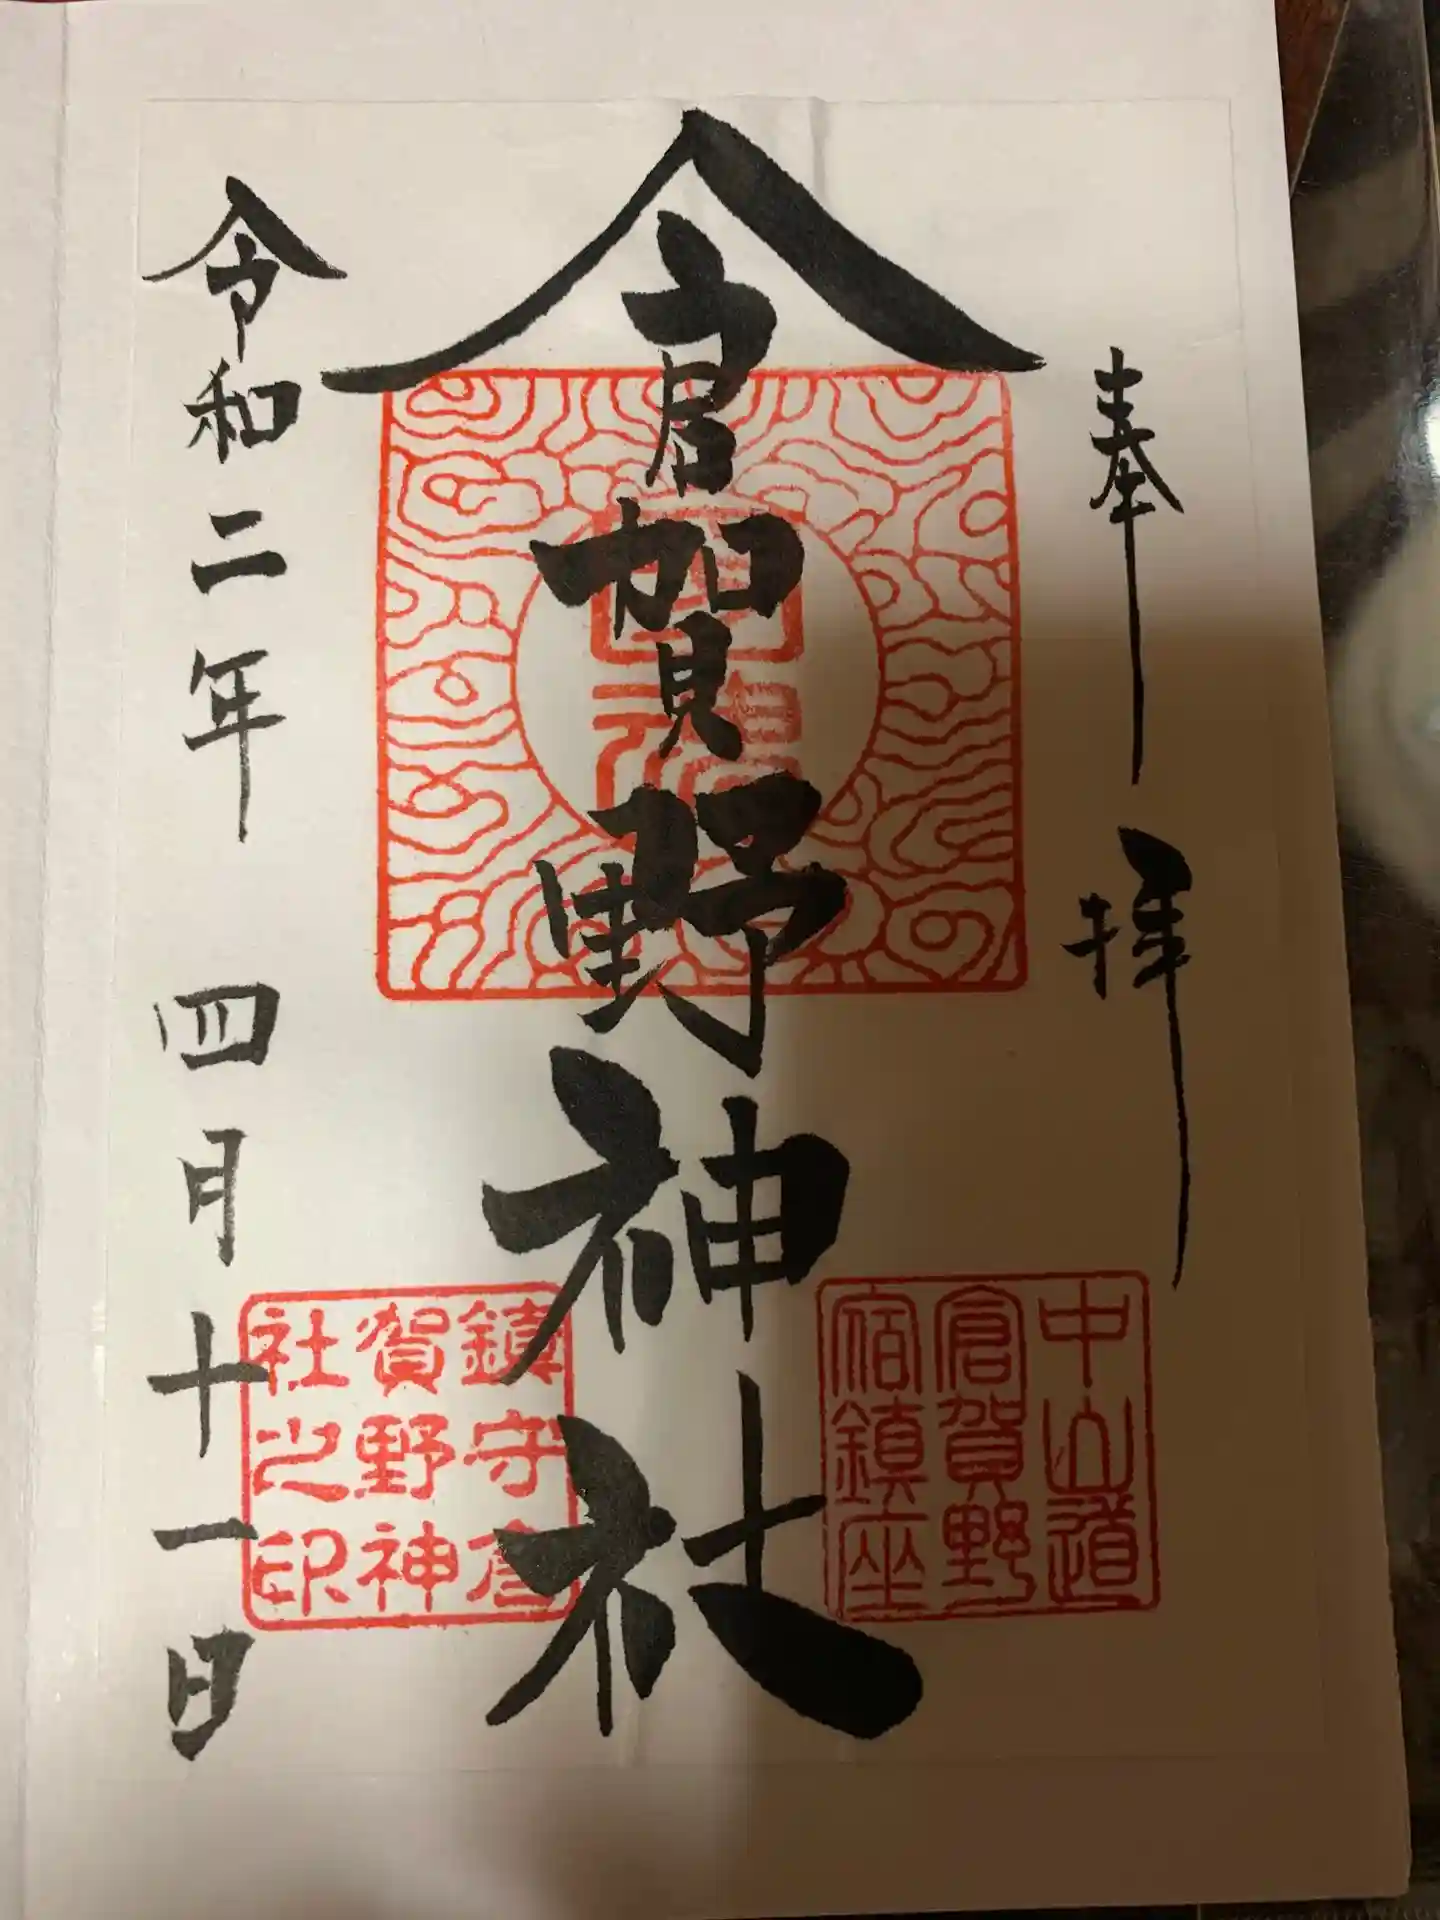 奉拝
倉賀野神社
中山道
倉賀野
宿鎮座
鎮守
賀野神
社之印
令和二年 四月十一日